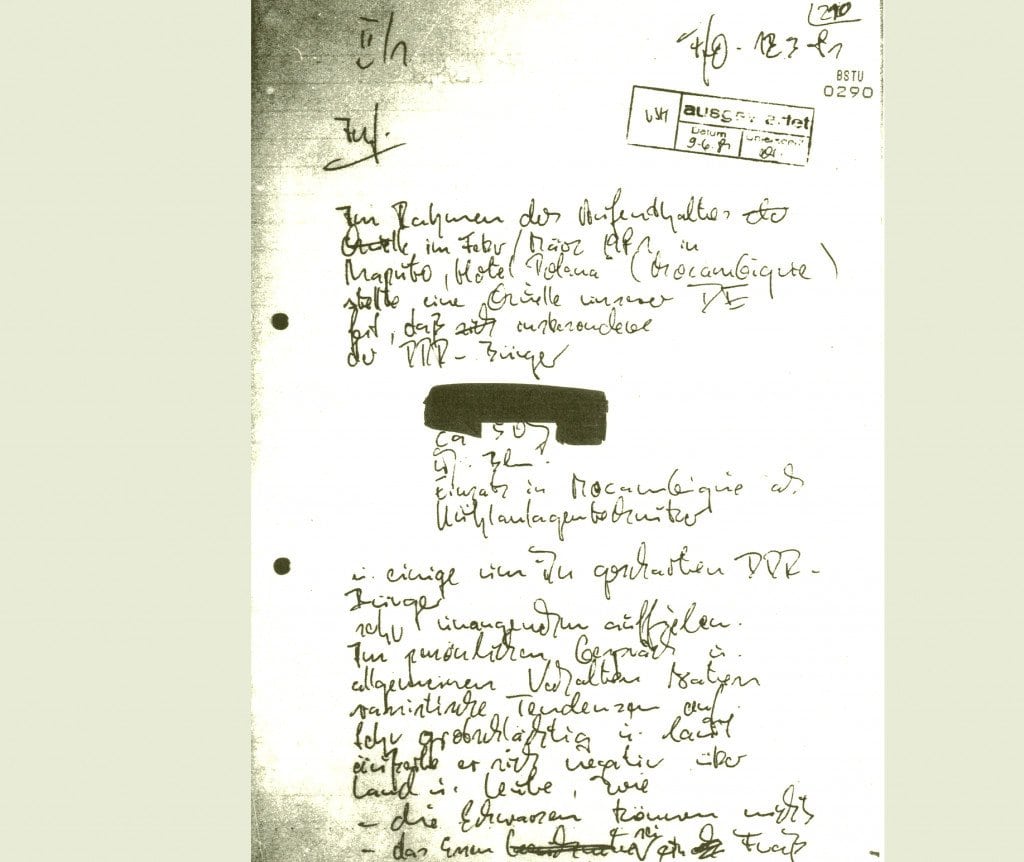 290
II/1
12.3.81
BSTU
0290
ausgewertet
Datum
9.6.81
Inf.
Im Rahmen des Aufenthaltes der
Quelle im Febr/März 1981 in
Maputo, Hotel "Polana" (Mocambique)
stellte eine Quelle unserer DE
fest, daß sich insbesondere
der DDR-Bürger
ca 50 J
Einsatz in Mocambique als
Kühlanlagentechniker
u. einige um ihn gescharten DDR-
Bürger
sehr unangenehm auffielen.
Im persönlichen Gespräch u.
allgemeinen Verhalten traten
rassistische Tendenzen auf.
Sehr grobschlächtig u. laut
äußerte er sich negativ über
Land u. Leute, wie
- die Schwarzen können nichts
- das Essen sei ein Fraß